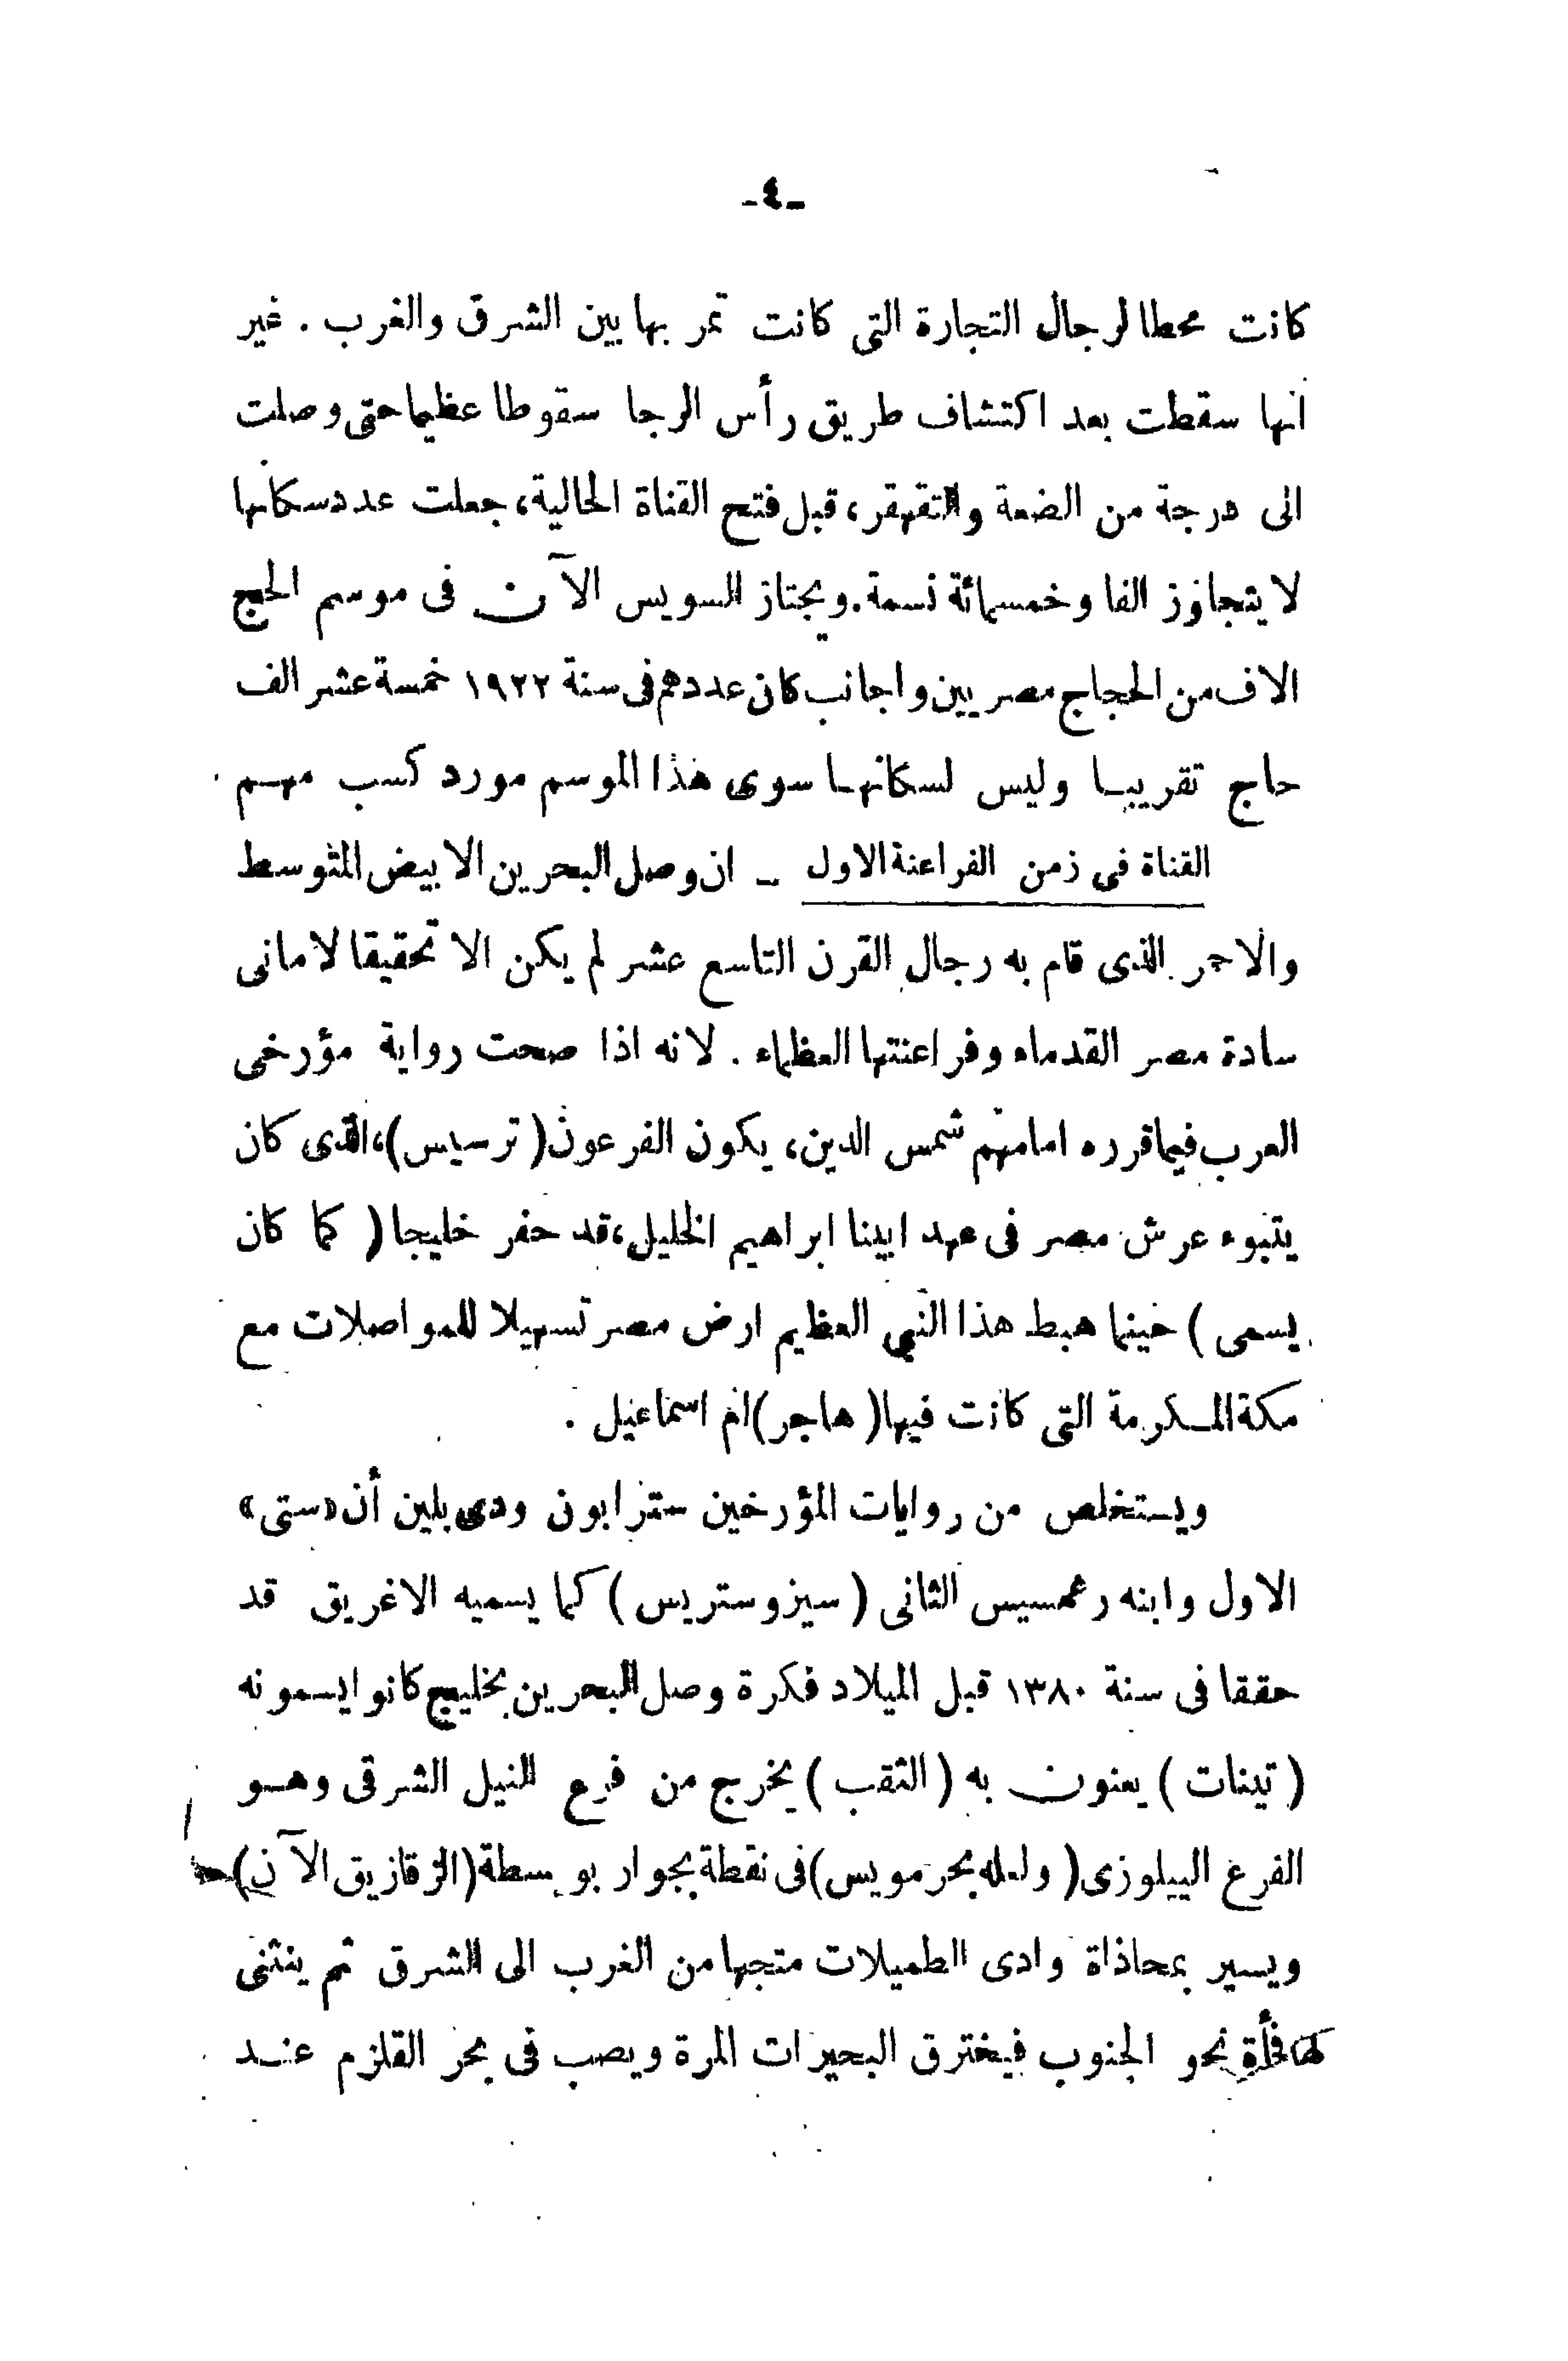 -٤-
كانت محطا لرجال التجارة التى كانت تمر بها بين الشرق والغرب . غير
انها سقطت بعد اكتشاف طريق رأس الرجا سقوطا عظيما حتى وصلت
الى درجة من الضعة والتقهقر، قبل فتح القناة الحالية، جعلت عدد سكانها
لا يتجاوز الفا وخمسمائة نسمة. ويجتاز السويس الآن فى موسم الحج
الاف من الحجاج مصريين واجانب كان عددهم فى سنة ١٩٢٢ خمسة عشر الف
حاج تقريبا وليس لسكانها سوى هذا الموسم مورد كسب مهم
القناة فى زمن الفراعنة الاول ـ ان وصل البحرين الابيض المتوسط
والاحمر الذى قام به رجال القرن التاسع عشر لم يكن الا تحقيقا لامانى
سادة مصر القدماء وفراعنتها العظماء . لانه اذا صحت رواية مؤرخى
العرب فيما قرره امامهم شمس الدين، يكون الفرعون ( ترسيس )، الذى كان
يتبوء عرش مصر فى عهد ابينا ابراهيم الخليل، قد حفر خليجا ( كما كان
يسمى ) حينما هبط هذا النبى العظيم ارض مصر تسهيلا للمواصلات مع
مكة المكرمة التى كانت فيها ( هاجر ) ام اسماعيل .
ويستخلص من روايات المؤرخين سترابون ودى بلين أن «ستى»
الاول وابنه رعمسيس الثانى ( سيزوستريس ) كما يسميه الاغريق قد
حققا فى سنة ١٣٨٠ قبل الميلاد فكرة وصل البحرين بخليج كانوا يسمونه
( تينات ) يعنون به ( الثقب ) يخرج من فرع النيل الشرقى وهو
الفرع البيلوزى ( ولعله بحر مويس ) فى نقطة بجوار بوبسطة ( الزقازيق الآن )
ويسير بمحاذاة وادى الطميلات متجها من الغرب الى الشرق ثم ينثنى
فجأة نحو الجنوب فيخترق البحيرات المرة ويصب فى بحر القلزم عند